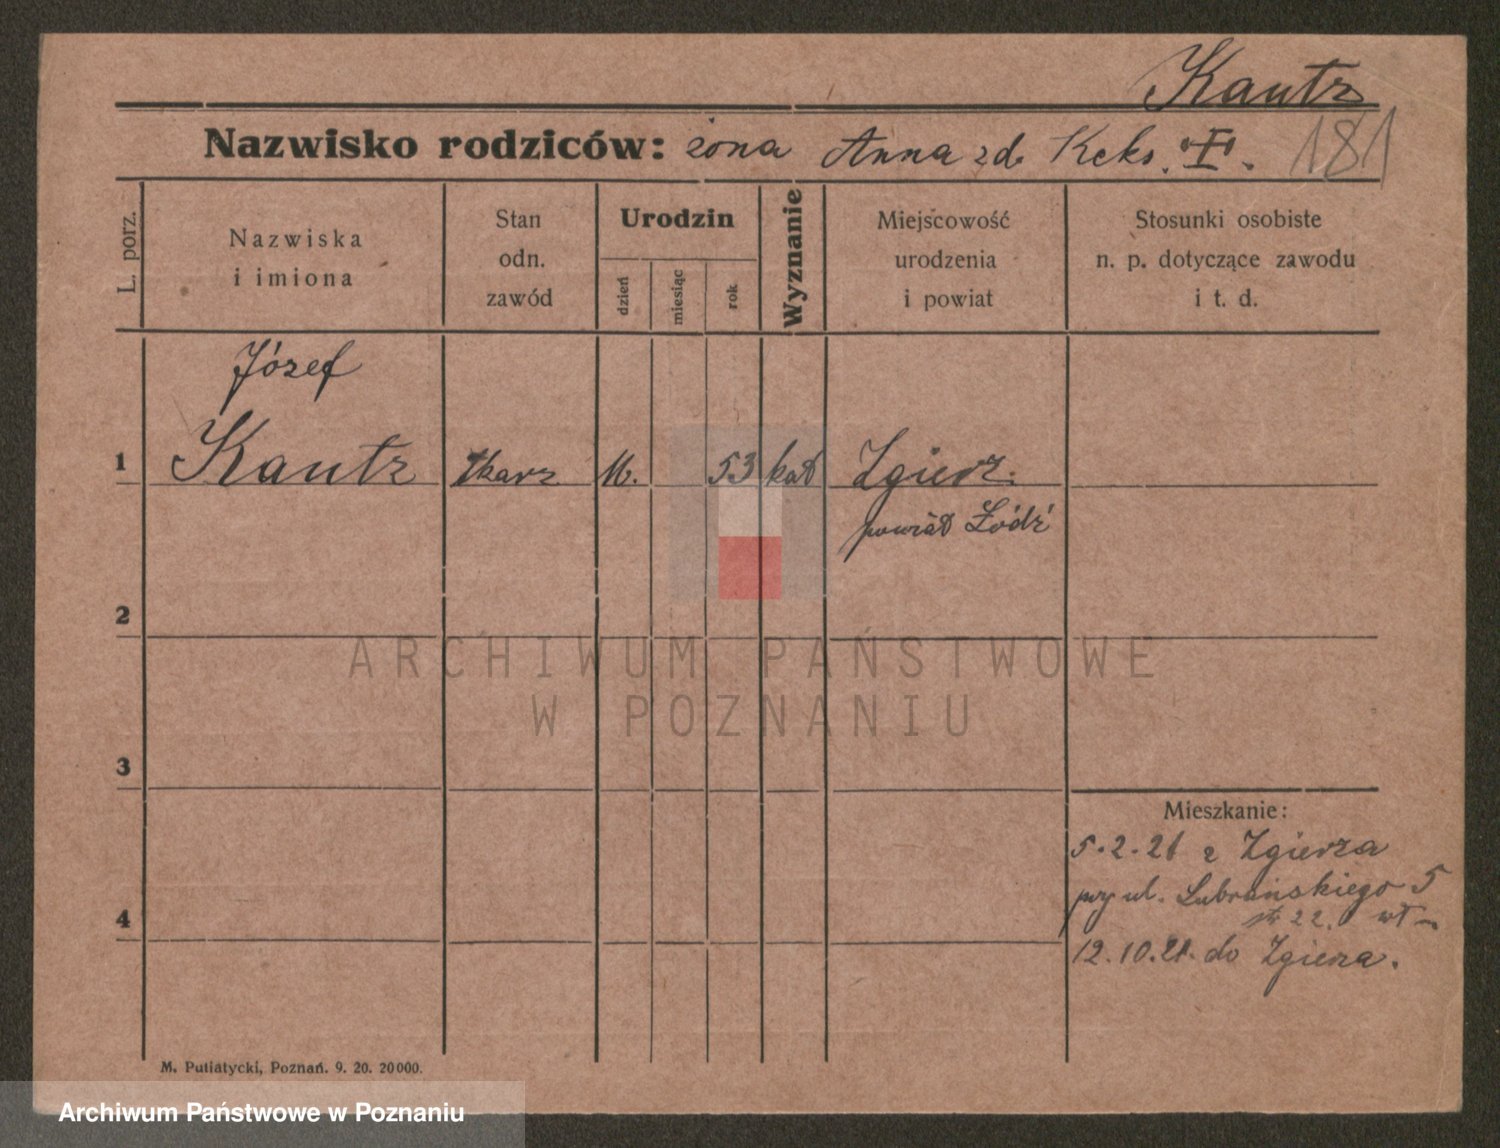 Kautz
Nazwisko rodziców: żona Anna zd. Keks.
181
L. porz.
Nazwiska
i imiona
Stan
odn.
zawód
Urodzin
dzień
miesiąc
rok
Wyznanie
Miejscowość
urodzenia
i powiat
Stosunki osobiste
n. p. dotyczące zawodu
i t. d.
Józef
1 Kautz tkacz 53 kat Zgierz.
powiat Łódź
2
ARCHIWUM PAŃSTWOWE
W POZNANIU
3
Mieszkanie:
5.2.21 z Zgierza
przy ul. Lubrańskiego 5
22.
4
12.10.21. do Zgierza.
M. Putiatycki, Poznań. 9. 20. 20000.
Archiwum Państwowe w Poznaniu